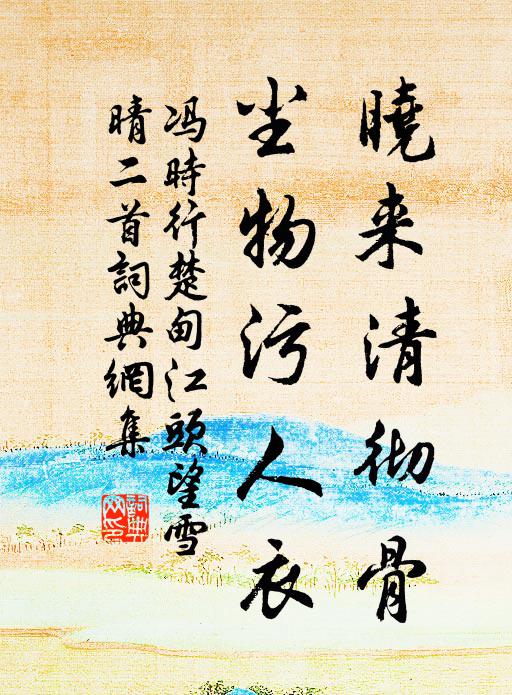 曉来清彻骨
尘物污人衣
冯時行楚甸江頭望雪
晴二首詞典網集
詞典